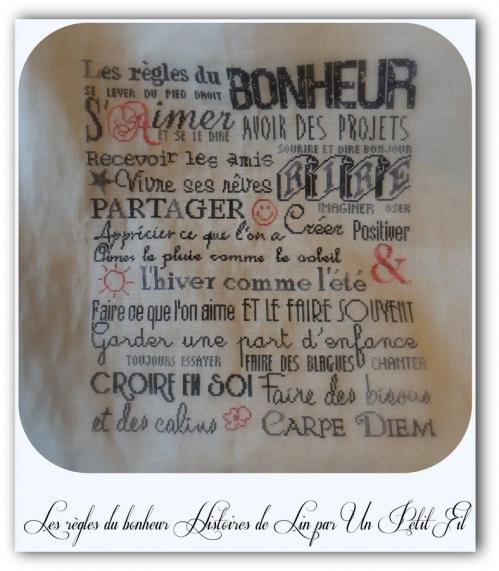 Les règles du BONHEUR
SE LEVER DU PIED DROIT
S'Aimer ET SE LE DIRE AVOIR DES PROJETS
SOURIRE ET DIRE BONJOUR
Recevoir les amis
Vivre ses rêves RIRE
IMAGINER OSER
PARTAGER Créer Positiver
Apprécier ce que l'on a
Aimer la pluie comme le soleil &
L'hiver comme l'été
Faire ce que l'on aime ET LE FAIRE SOUVENT
Garder une part d'enfance
TOUJOURS ESSAYER FAIRE DES BLAGUES CHANTER
CROIRE EN SOI Faire des bisous
et des calins CARPE DIEM
Les règles du bonheur Histoires de Lin par Un Petit Fil